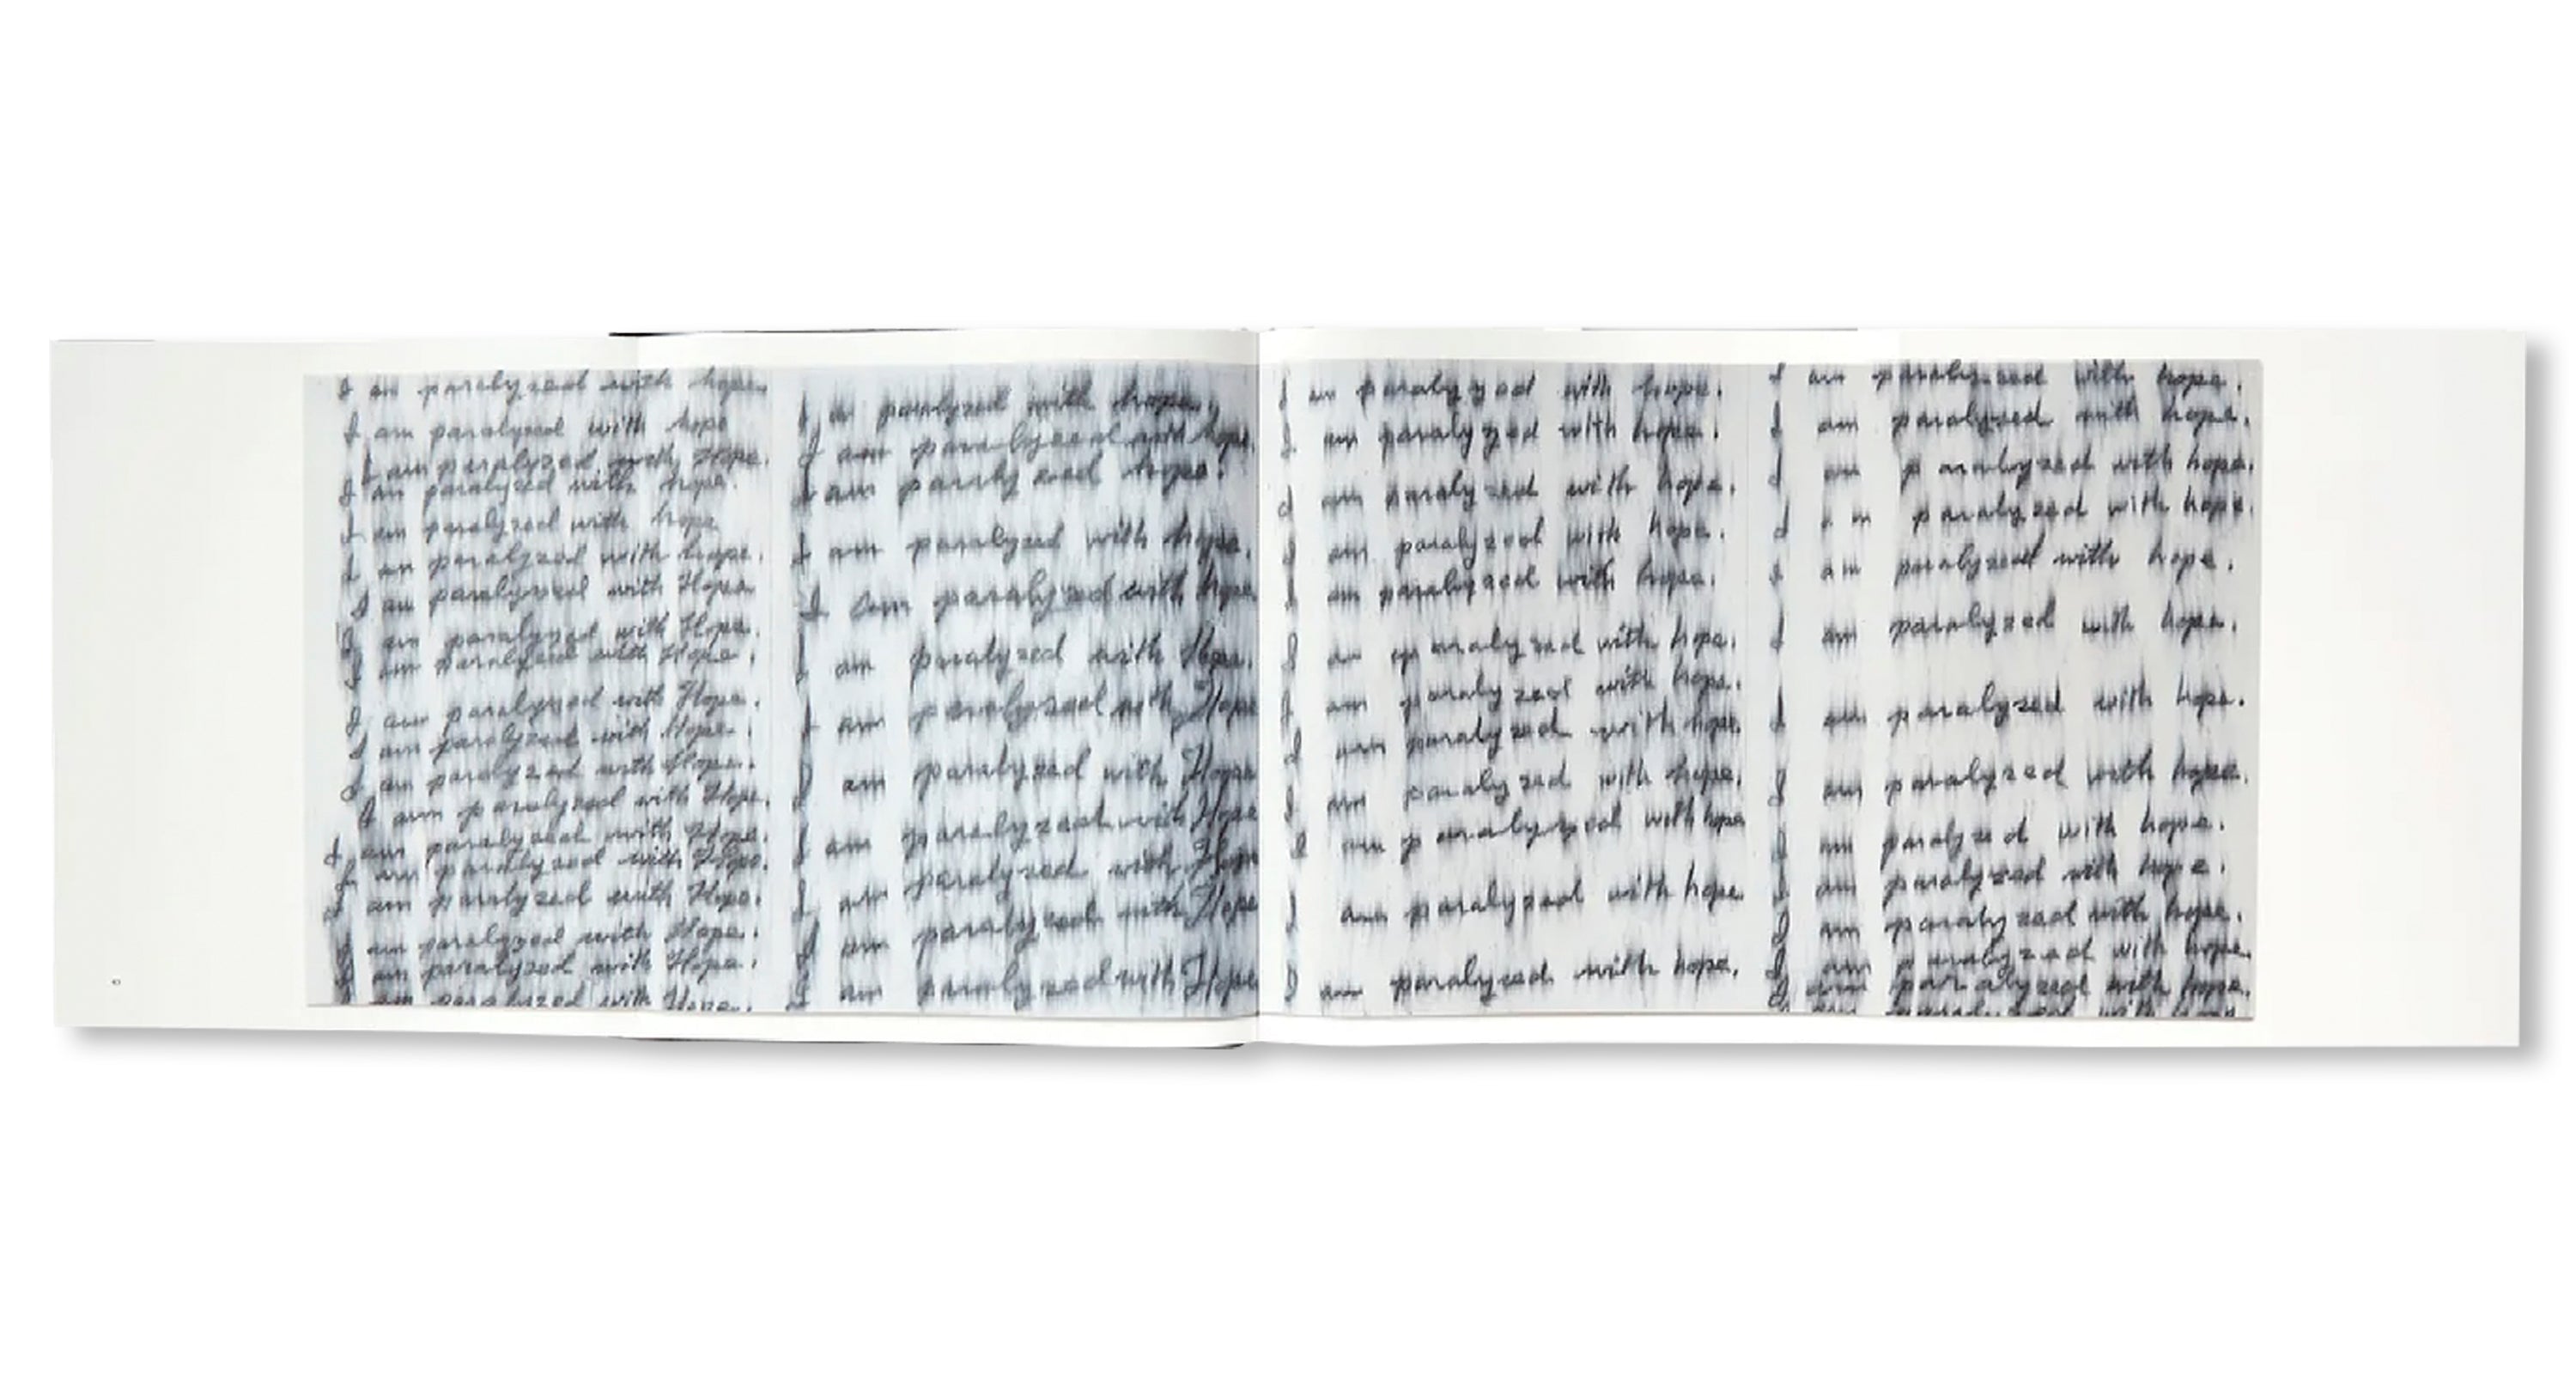 I am paralyzed with hope.
I am paralyzed with hope
I am paralyzed with Hope.
I am paralyzed with hope.
I am paralyzed with hope
I am paralyzed with hope.
I am paralyzed with Hope
I am paralyzed with Hope.
I am paralyzed with Hope.
I am paralyzed with Hope.
I am paralyzed with Hope.
I am paralyzed with Hope.
I am paralyzed with Hope.
I am paralyzed with Hope.
I am paralyzed with Hope.
I am paralyzed with Hope.
I am paralyzed with Hope.
I am paralyzed with Hope.
am paralyzed with Hope.
I am paralyzed with hope.
I am paralyzed with hope.
I am paralyzed hope.
I am paralyzed with hope.
I am paralyzed with hope.
I am paralyzed with Hope.
I am paralyzed with Hope
I am paralyzed with Hope
I am paralyzed with Hope
I am paralyzed with Hope
I am paralyzed with Hope
I am paralyzed with Hope
I am paralyzed with hope.
I am paralyzed with hope.
I am paralyzed with hope.
I am paralyzed with hope.
I am paralyzed with hope.
I am paralyzed with hope.
I am paralyzed with hope.
I am paralyzed with hope.
I am paralyzed with hope.
I am paralyzed with hope
I am paralyzed with hope
I am paralyzed with hope.
I am paralyzed with hope.
I am paralyzed with hope.
I am paralyzed with hope.
I am paralyzed with hope.
I am paralyzed with hope.
I am paralyzed with hope.
I am paralyzed with hope.
I am paralyzed with hope.
I am paralyzed with hope.
I am paralyzed with hope.
I am paralyzed with hope.
I am paralyzed with hope.
I am paralyzed with hope.
am paralyzed with hope